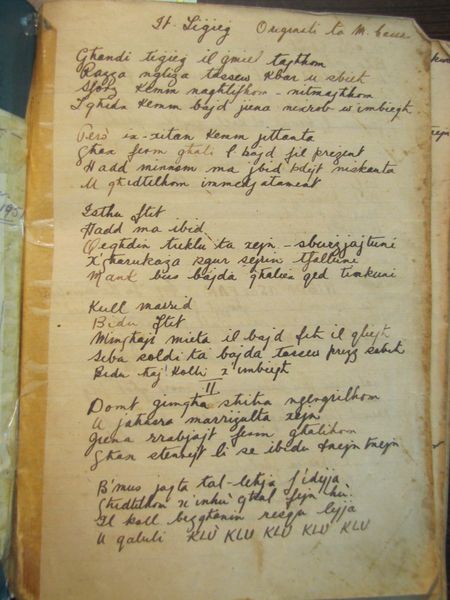 It-Tigieg Originali ta M. Caru
Ghandi tigieg il gmiel taghhom
Razza ngliza tassew kbar u sbieh
Sforz kemm naghtifhom - nitmaghhom
Ighidu kemm bajd jiena nixrob w imbiegh
Pero ix-xitan kemm jittanta
Ghax ferm ghali l bajd fil prezent
Hadd minnom ma jbid bdejt niskanta
U ghidtilhom immedjatament
Isthu ftit
Hadd ma ibid
Qeghdin tieklu ta xejn - sburzjajtuni
X'gharukaza zgur sejrin tfalluni
Mank bus bajda ghaliex qed tinkuni
Kull marrid
Bidu ftit
Minghajr mieta il bajd fih il qliegh
Seba soldi ta bajda tassew prezz sabih
Bidu haj Kolli x'imbiegh
II
Domt gimgha shiha ngergrilhom
U jahasra marrizulta xejn
Jiena rrabjajt ferm ghalihom
Ghax stennejt li se ibidu tnejn tnejn
B'mus jaqta tal-lehja f'idejja
Ghidtilhom x'inhu ghal fejn hu
Il koll bezghanin resqu lejja
U qaluli KLU KLU KLU KLU KLU